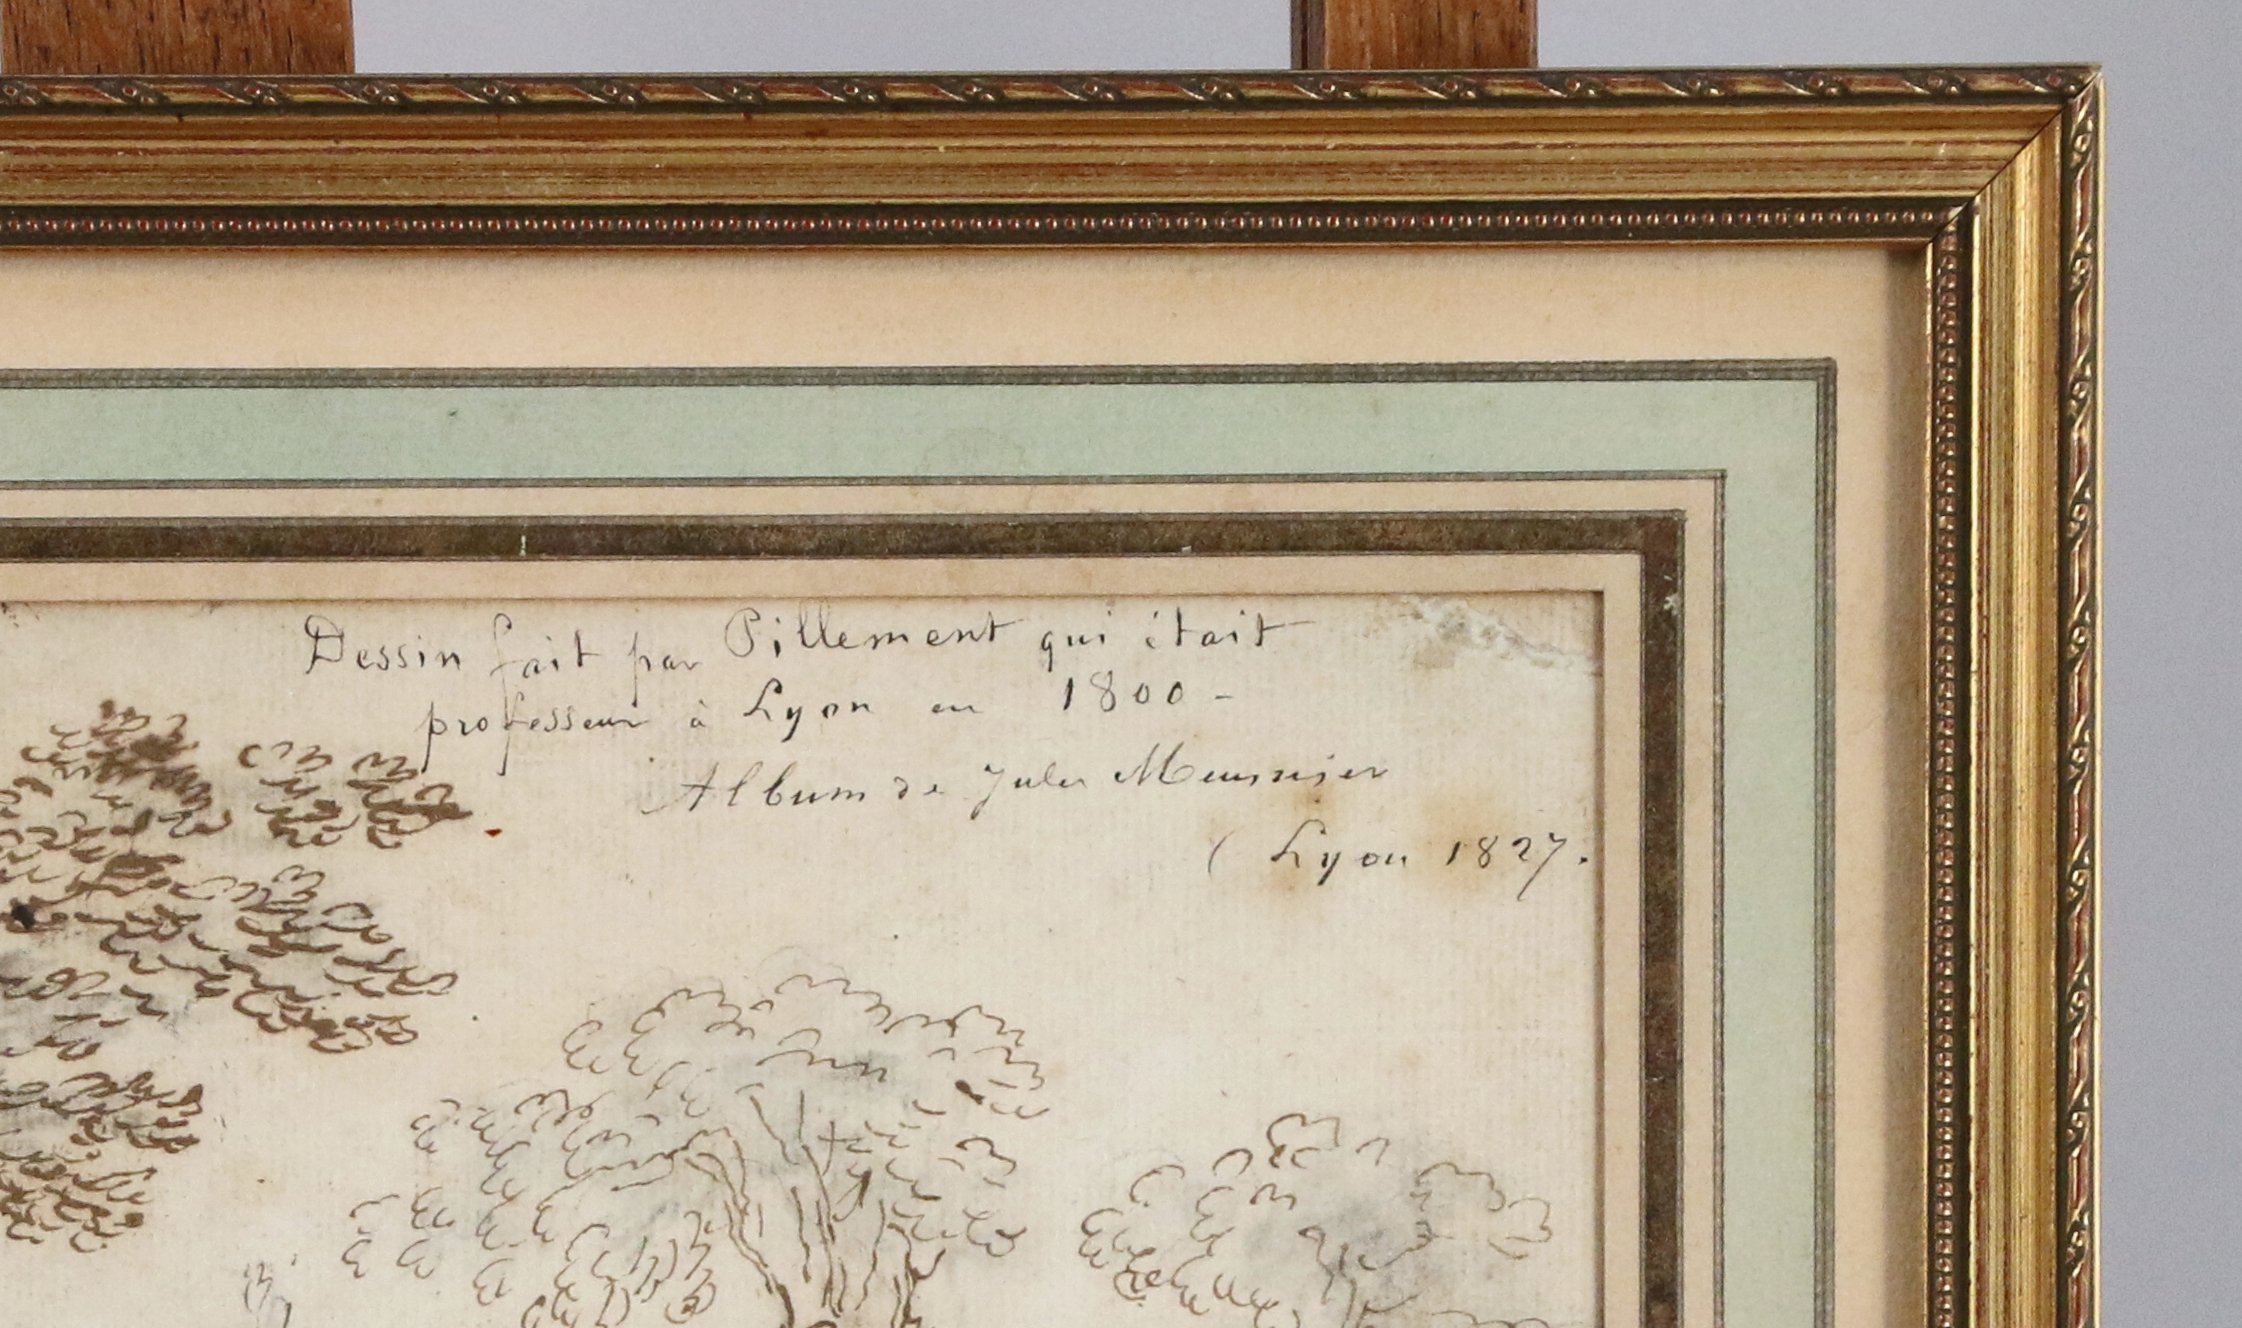 Dessin fait par Pillement qui était
professeur à Lyon en 1800 -
Album de Jules Meunier
( Lyon 1827.